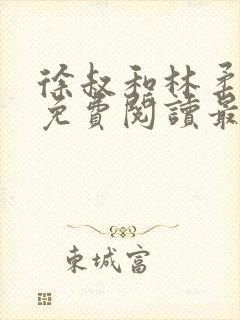 徐叔和林柔
免費閱讀最
東城富